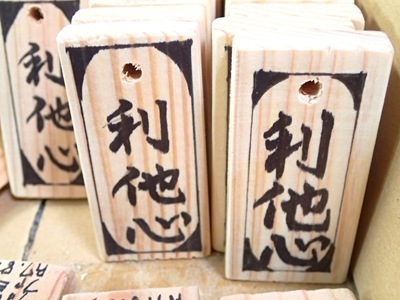 利他心
利他心
利他心